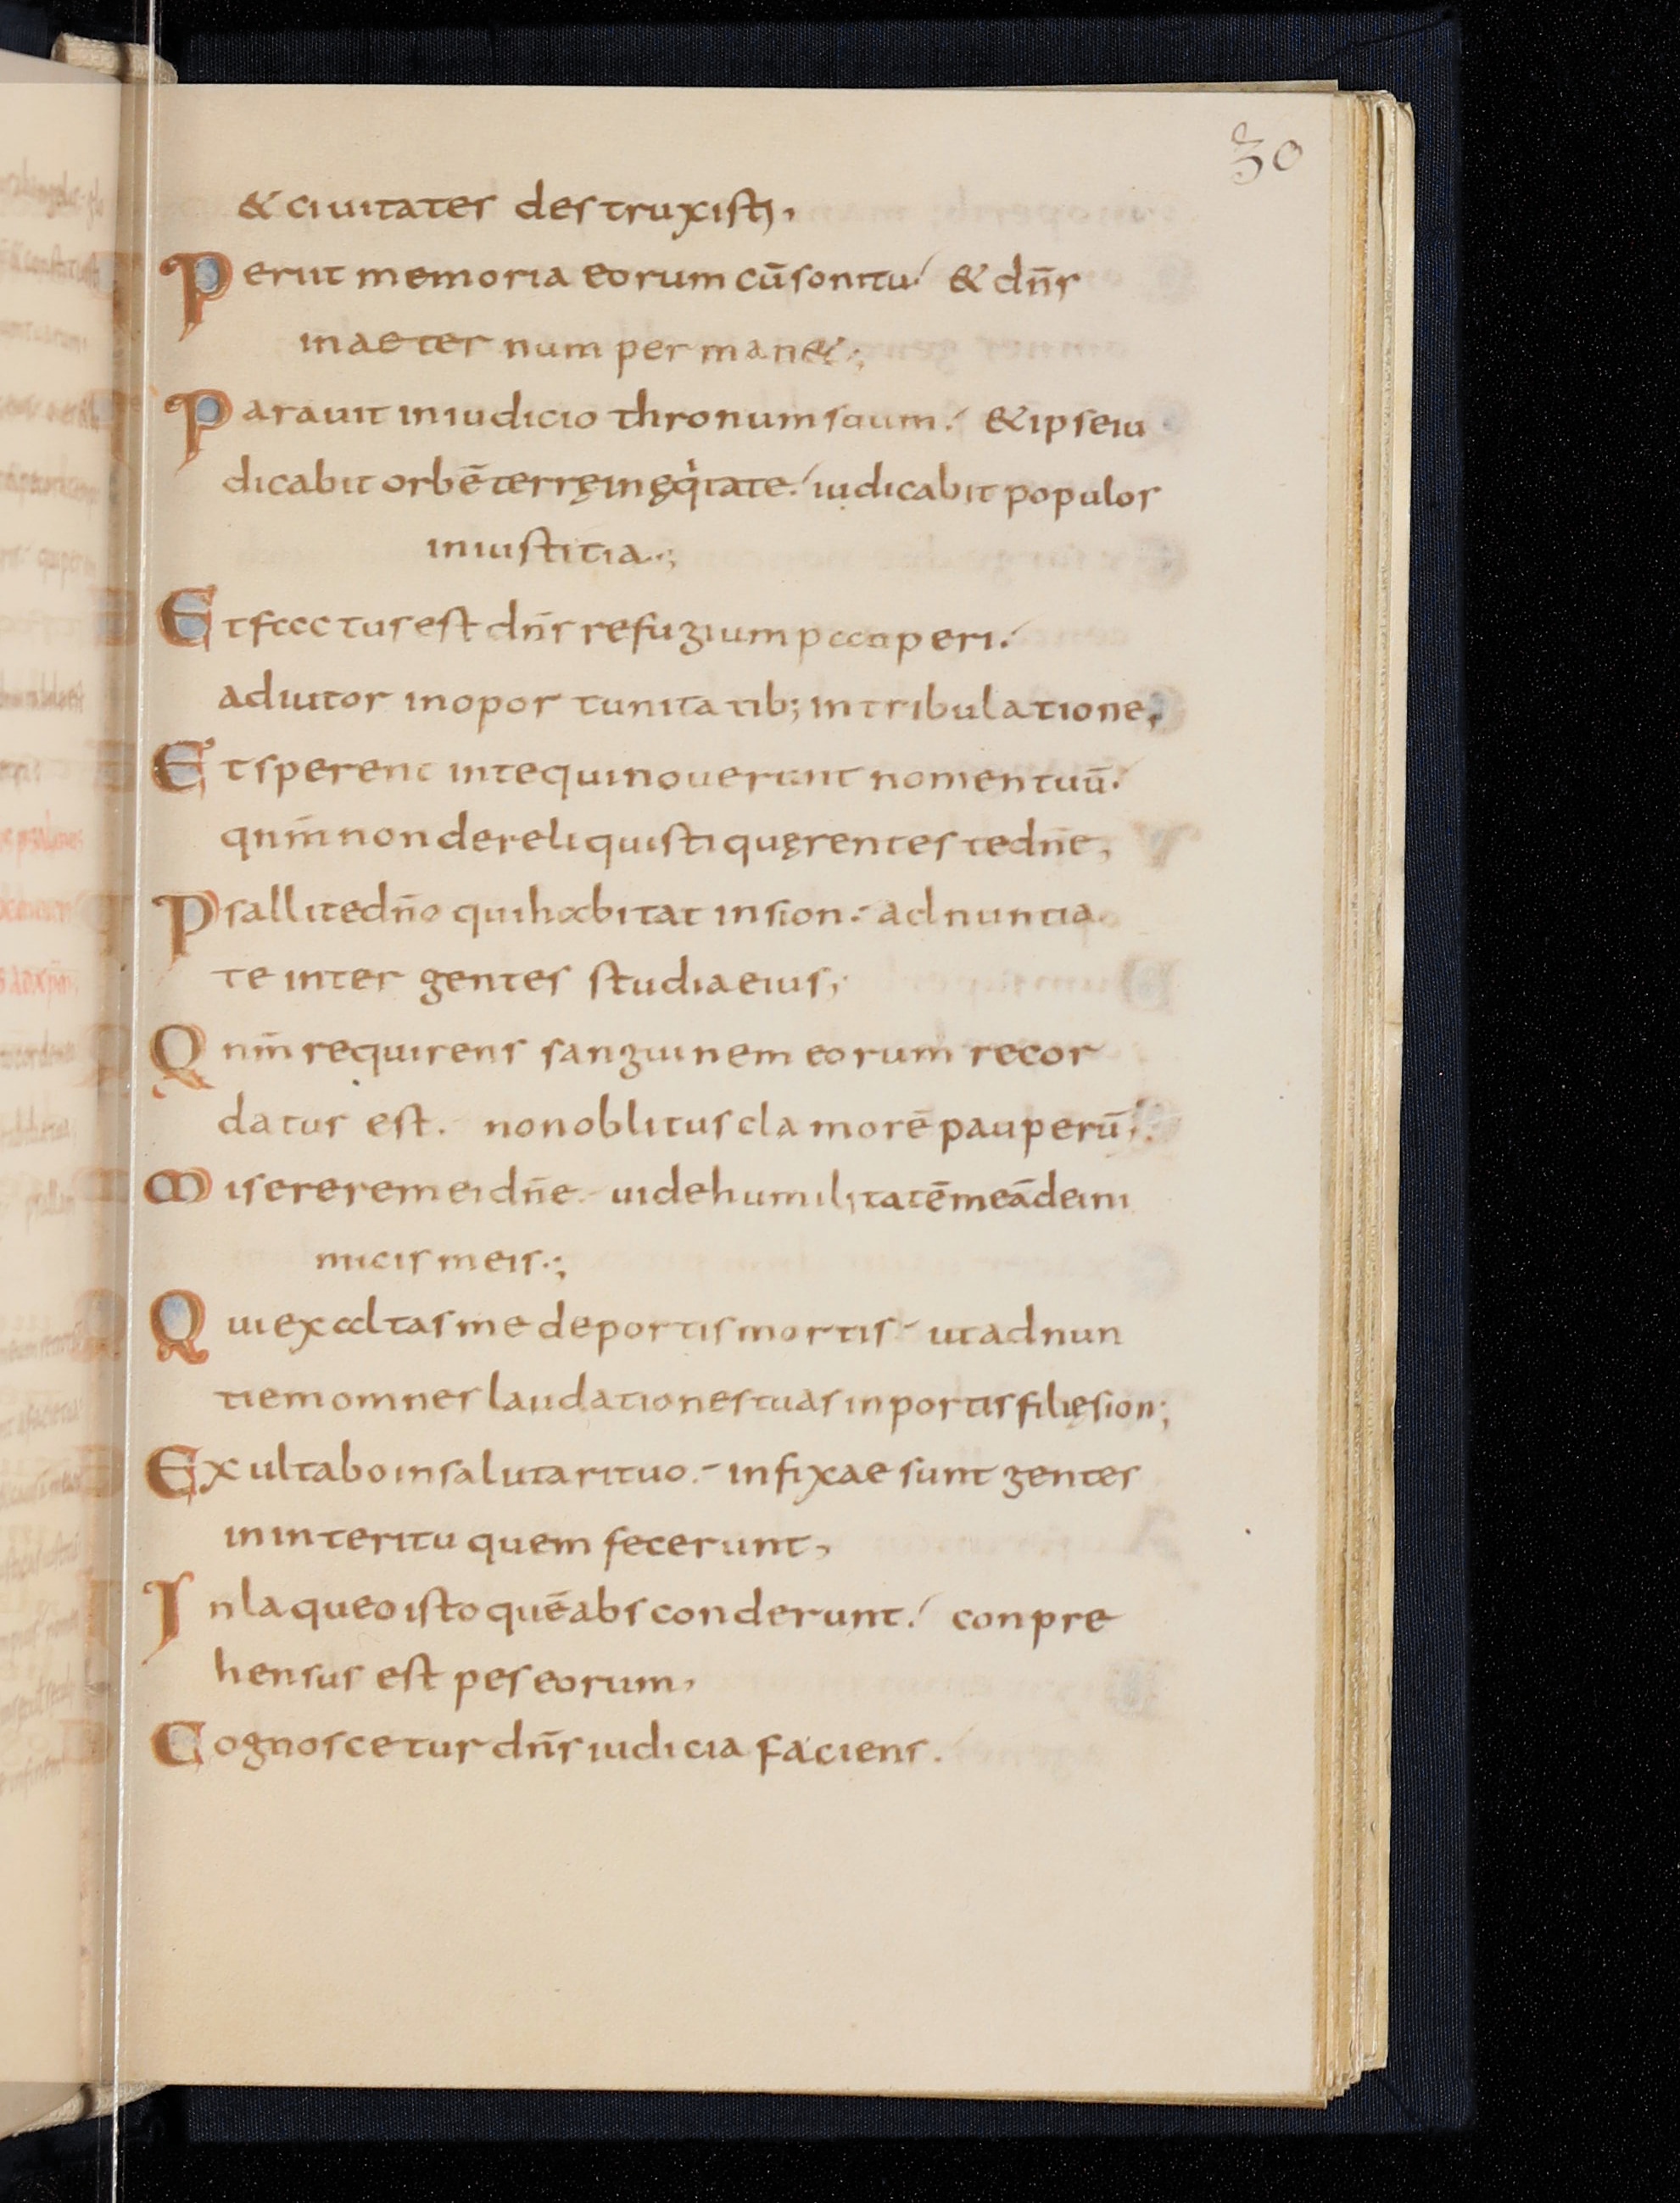 30
& ciuitates destruxisti,
Periit memoria eorum cū sonitu & dn̄s
in aeternum permanet;
Parauit in iudicio thronum suum & ipse iu
dicabit orbē terrę in ęqͥtate iudicabit populos
in iustitia;
Et factus est dn̄s refugium pauperi
adiutor in oportunitatib; in tribulatione;
Et sperent in te qui nouerunt nomen tuū
qm̄ non dereliquisti quęrentes te dn̄e,
Psallite dn̄o qui habitat in sion adnuntia
te inter gentes studia eius;
Qnm̄ requirens sanguinem eorum recor
datus est. non oblitus clamorē pauperū;
Miserere mei dn̄e uide humilitatē meā de ini
micis meis;
Qui exaltas me de portis mortis ut adnun
tiem omnes laudationes tuas in portis filię sion;
Exultabo in salutari tuo infixae sunt gentes
in interitu quem fecerunt,
In laqueo isto quē absconderunt conpre
hensus est pes eorum,
Cognoscetur dn̄s iudicia faciens.